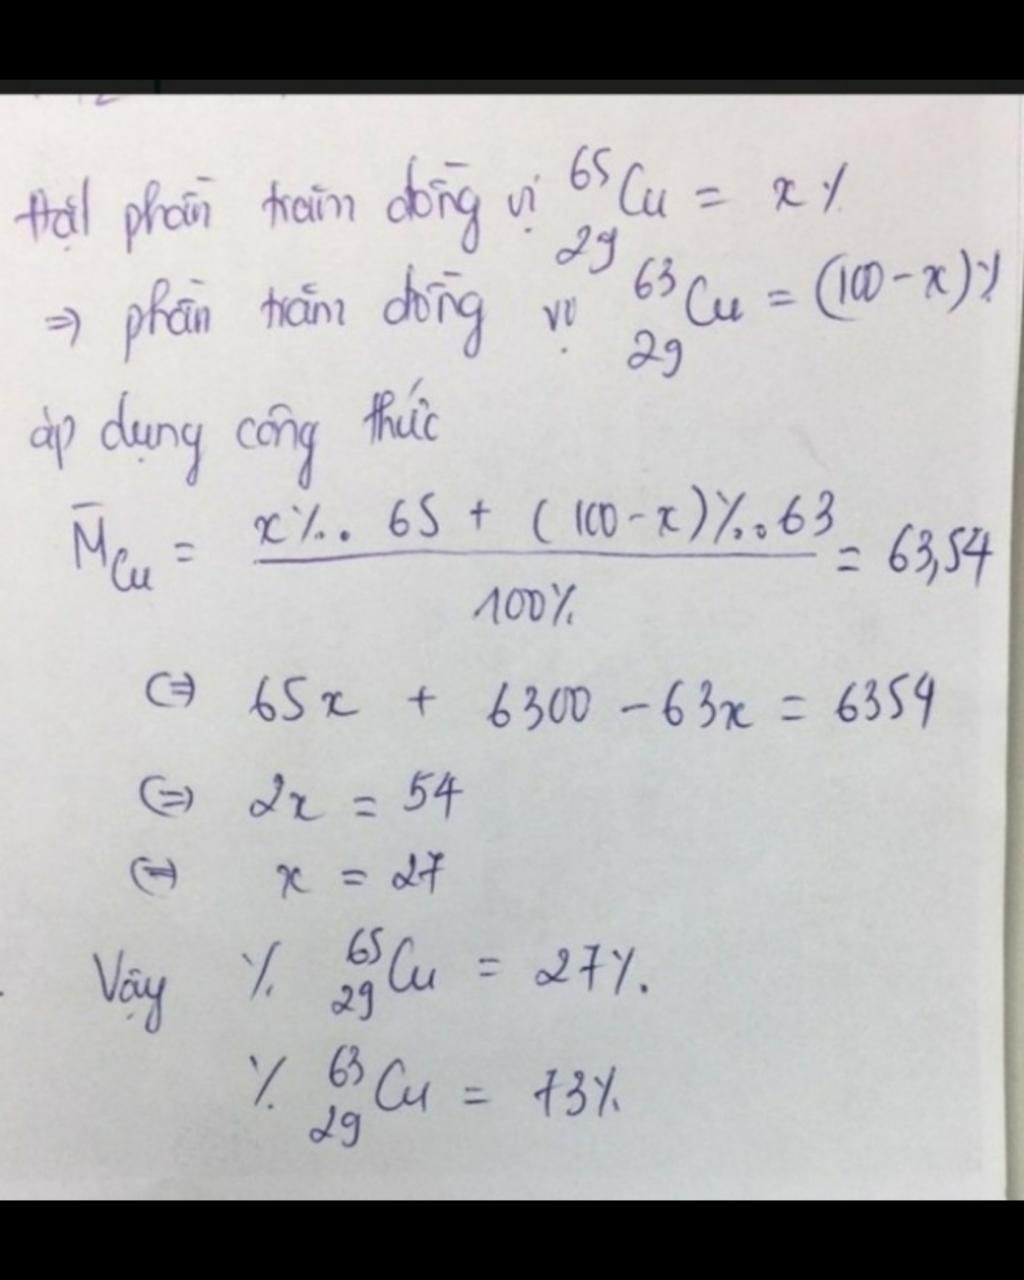 Đặt phần trăm đồng vị ⁶⁵₂₉Cu = x%
⇒ phần trăm đồng vị ⁶³₂₉Cu = (100 - x)%
áp dụng công thức
M̄Cu = (x% . 65 + (100 - x)% . 63) / 100% = 63,54
⇔ 65x + 6300 - 63x = 6354
⇔ 2x = 54
⇔ x = 27
Vậy % ⁶⁵₂₉Cu = 27%.
% ⁶³₂₉Cu = 73%